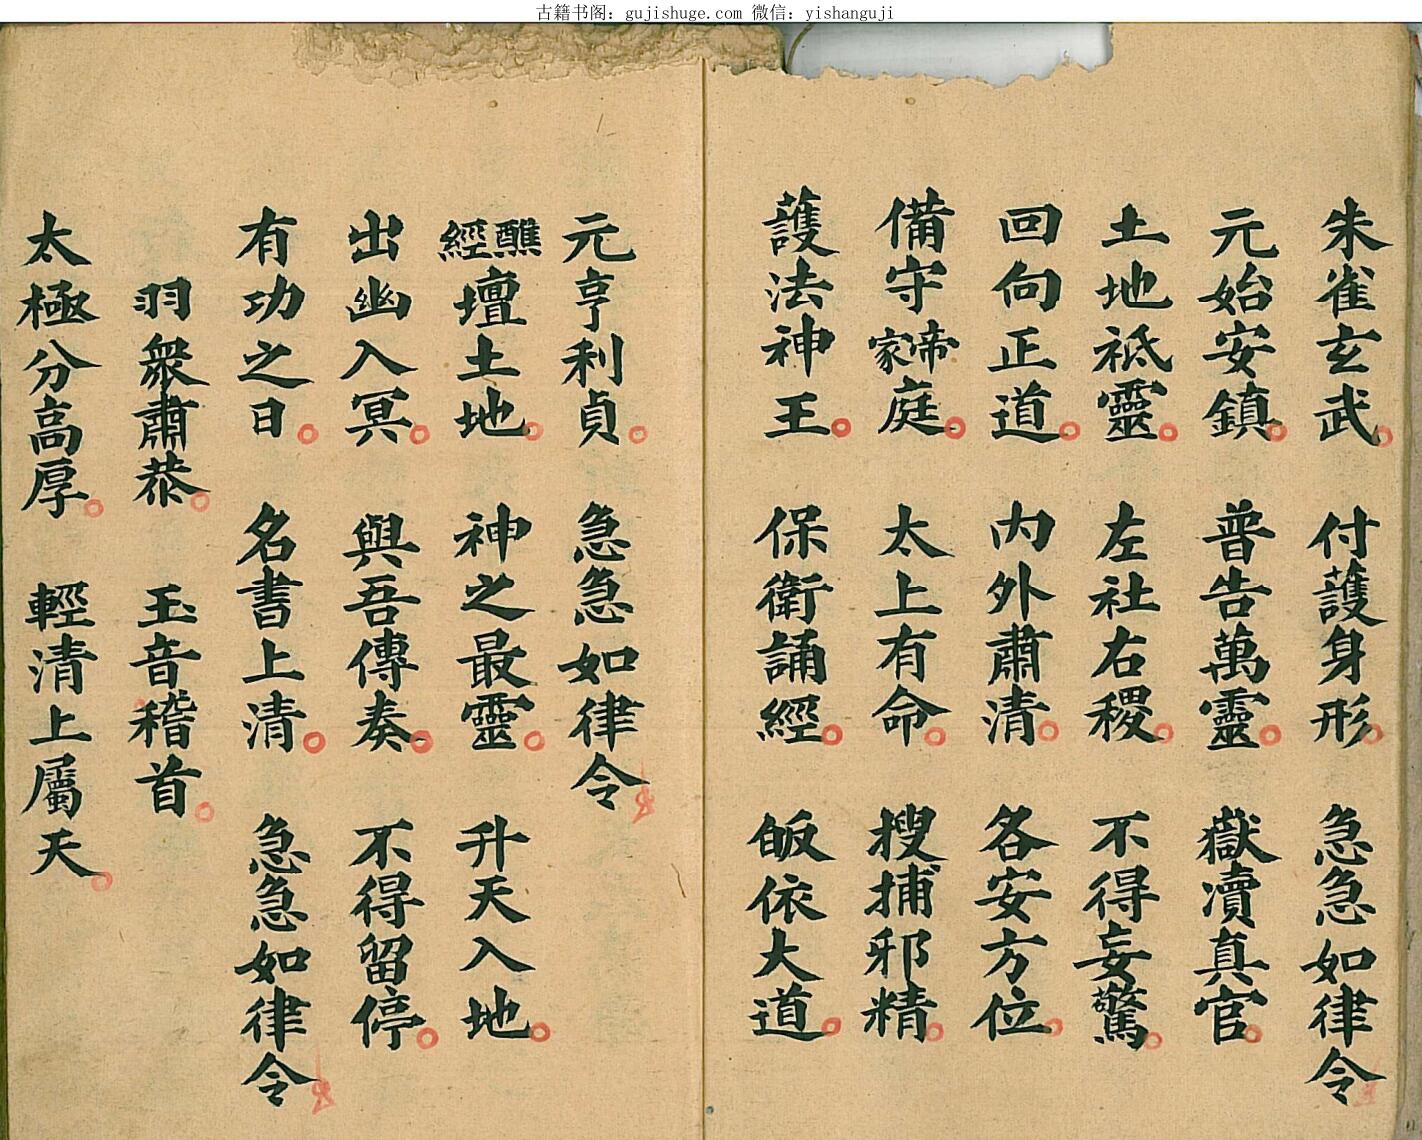 古籍书阁：gujishuge.com 微信：yishanguji
朱雀玄武。付䕶身形。急急如律令
元始安鎮。普告萬靈。嶽瀆真官。
土地祇靈。左社右稷。不得妄驚。
回向正道。內外肅清。各安方位。
備守帝家庭。太上有命。搜捕邪精。
䕶法神王。保衛誦經。皈依大道。
元亨利貞。急急如律令
醮經壇土地。神之最靈。升天入地。
出幽入冥。與吾傳奏。不得留停。
有功之日。名書上清。急急如律令
羽眾肅恭。玉音稽首。
太極分高厚。輕清上屬天。